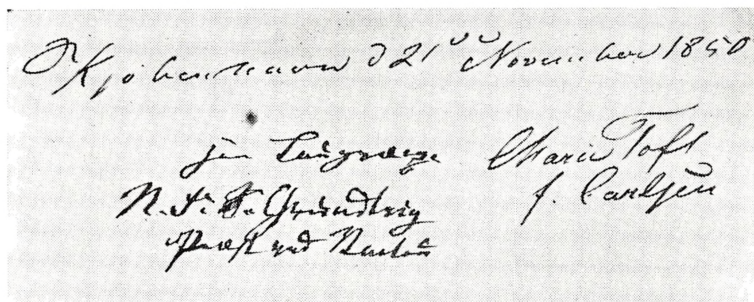 Kjøbenhavn d 21de November 1850
som Laugværge
N. F. S. Grundtvig
Præst ved Vartou
Marie Toft
f. Carlsen